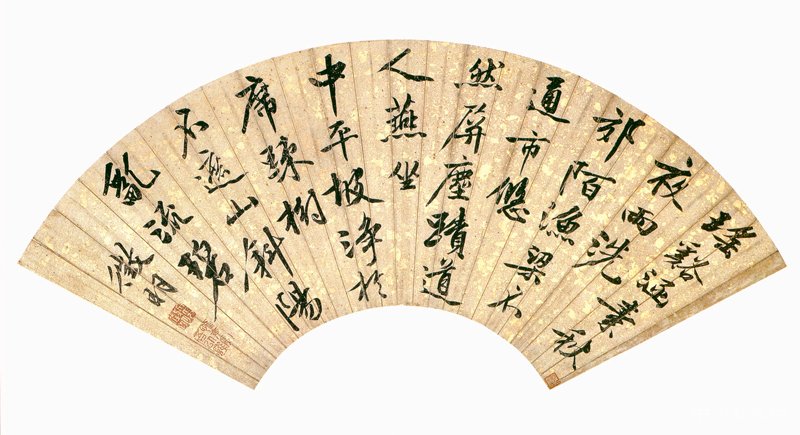 瑤谿涵素秋
夜雨洗
郊陌漁梁不
通市悠
然屏塵蹟道
人燕坐
中平坡淨於
席疎樹
不遮山斜陽
亂流碧
徵明